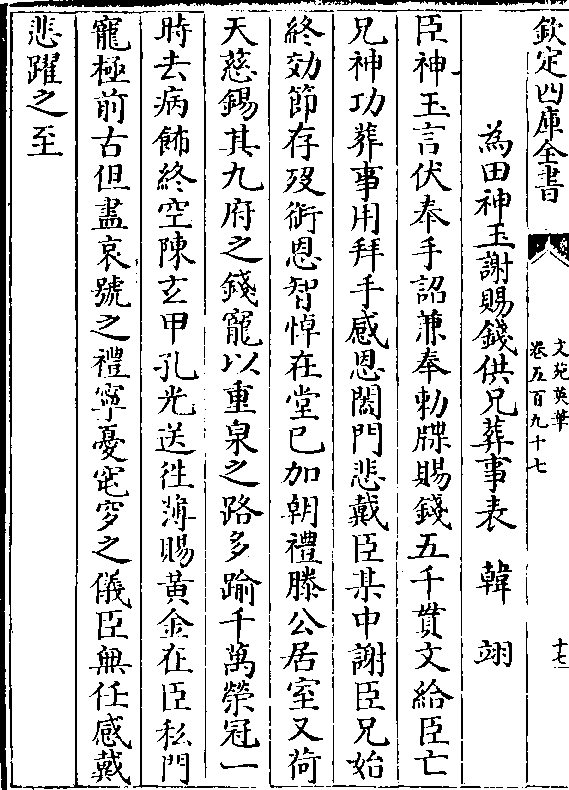 欽定四庫全書
文苑英華
卷五百九十七
十七
為田神玉謝賜錢供兄葬事表　韓　翃
臣神玉言伏奉手詔兼奉勅牒賜錢五千貫文給臣亡
兄神功葬事用拜手感恩闔門悲戴臣某中謝臣兄始
終効節存歿銜恩智悼在堂已加朝禮滕公居室又荷
天慈錫其九府之錢寵以重泉之路多踰千萬榮冠一
時去病飾終空陳玄甲孔光送徃薄賜黃金在臣私門
寵極前古但盡哀號之禮寧憂窀穸之儀臣無任感戴
悲躍之至